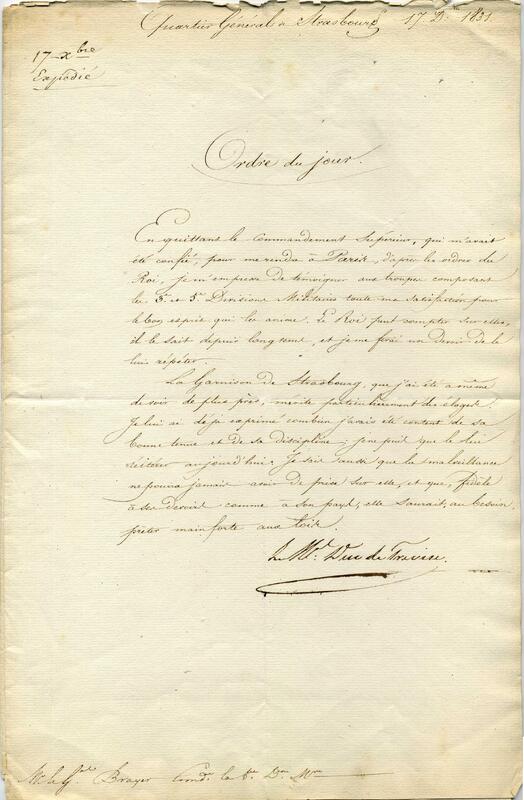 Quartier Général à Strasbourg 17 D.bre 1831.
17 Xbre
Expédié
Ordre du jour.
En quittant le Commandement Supérieur, qui m'avait
été confié, pour me rendre à Paris, d'après les ordres du
Roi, je m'empresse de témoigner aux troupes composant
les 3e et 5e Divisions Militaires toute ma satisfaction pour
le bon esprit qui les anime. Le Roi peut compter sur elles,
il le sait depuis longtems, et je me ferai un devoir de le
lui répéter.
La Garnison de Strasbourg, que j'ai été à même
de voir de plus près, mérite particulièrement des éloges.
Je lui ai déjà exprimé combien j'avais été content de sa
bonne tenue et de sa discipline; je ne puis que le lui
réitérer aujourd'hui. Je sais aussi que la malveillance
ne pourra jamais avoir de prise sur elle, et que, fidèle
à ses devoirs comme à son pays, elle saurait, au besoin,
prêter main forte aux lois.
Le Mal. Duc de Trévise.
Mr le Gal Brayer Comdt la 5e Don Mre